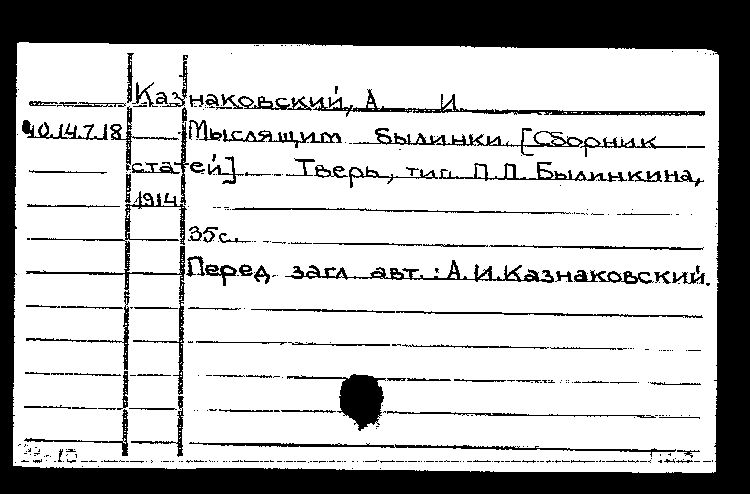 Казнаковский, А. И.
40.14.7.18 Мыслящим былинки. [Сборник
статей]. Тверь, тип. П.П. Былинкина,
1914
35с.
Перед загл. авт.: А.И.Казнаковский.